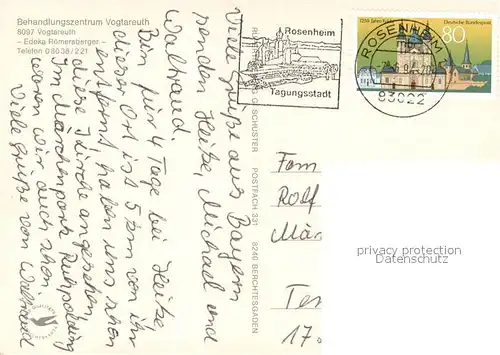 Behandlungszentrum Vogtareuth
8097 Vogtareuth
– Edeka Römersberger –
Telefon 08038/221
Viele Grüße aus Bayern
senden Heike, Michael und
Waltraud.
Bin für 4 Tage bei Heike
dieser Ort ist 5 km von ihr
entfernt, haben uns schon
diese Kirche angesehen.
Im Märchenpark Ruhpolding
waren wir auch schon
Viele Grüße von Waltraud
GSCHUSTER POSTFACH 331 8240 BERCHTESGADEN
Rosenheim
Tagungsstadt
ROSENHEIM
83022
Deutsche Bundespost
80
Fam
Rolf
Mär
privacy protection
Datenschutz
17.